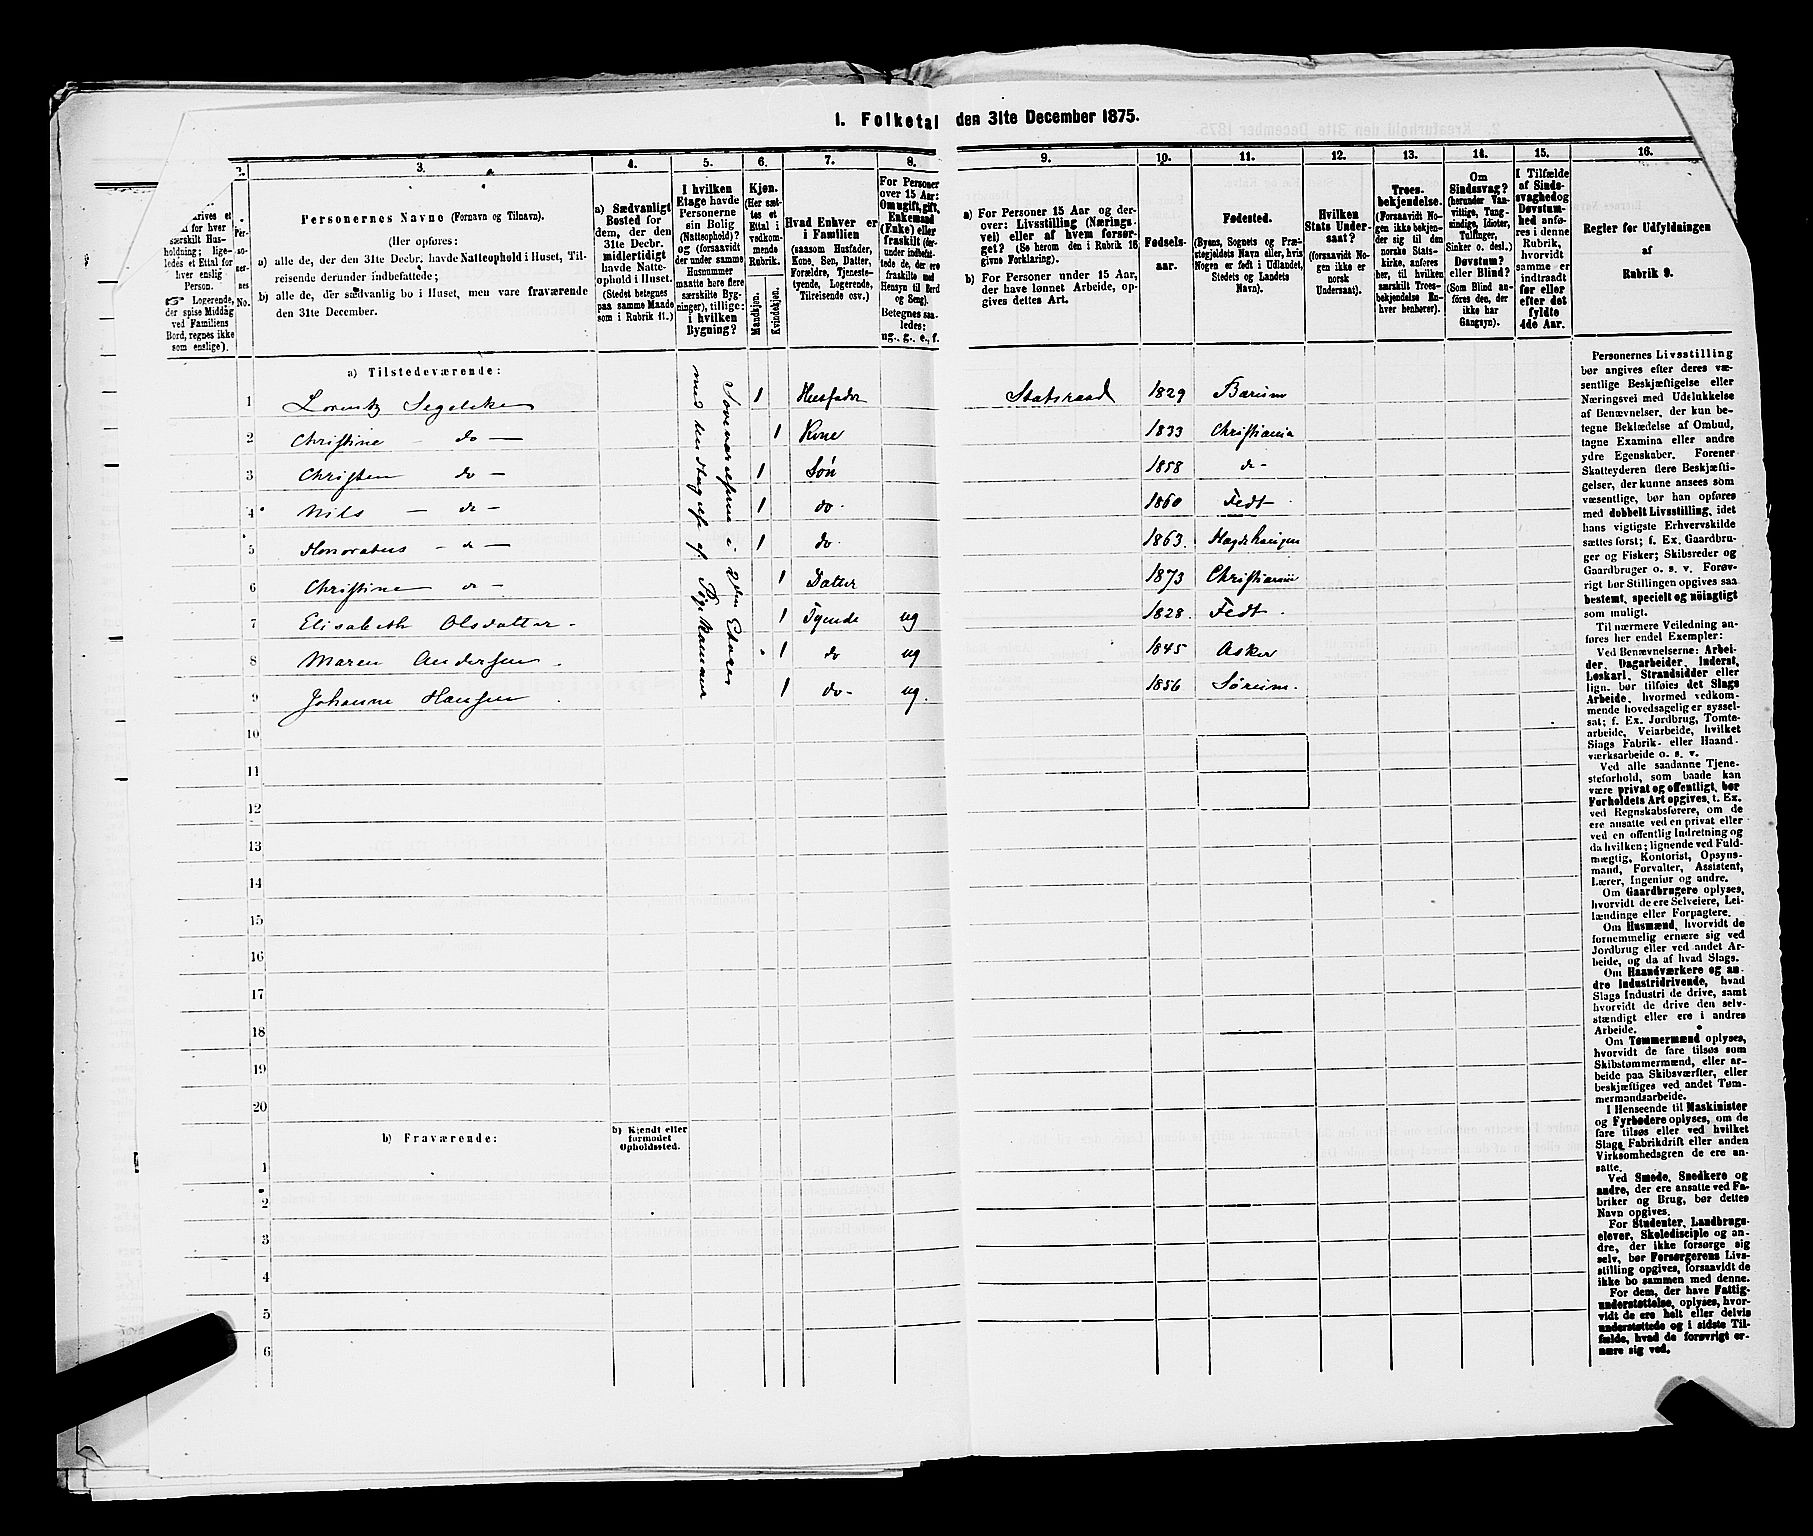 1. Folketal den 31te December 1875.
2. 3. 4. 5. 6. 7. 8. 9. 10. 11. 12. 13. 14. 15. 16.
særskilt Hus-
holdning; lige-
ledes et Ettal for
hver enslig
Person.
☞ Logerende,
der spise Middag
ved Familiens
Bord, regnes ikke
som enslige).
Per-
so-
ner-
nes
No.
Personernes Navne (Fornavn og Tilnavn).
(Her opføres:
a) alle de, der den 31te Decbr. havde Natteophold i Huset, Til-
reisende derunder indbefattede;
b) alle de, der sædvanlig bo i Huset, men vare fraværende
den 31te December.
a) Sædvanligt
Bosted for
dem, der den
31te Decbr.
midlertidigt
havde Natte-
ophold i Huset.
(Stedet betegnes
paa samme Maade
som i Rubrik 11.)
I hvilken
Etage havde
Personerne
sin Bolig
(Natteophold)?
og (forsaavidt
der under samme
Husnummer
maatte høre flere
særskilte Byg-
ninger), tillige:
i hvilken
Bygning?
Kjøn.
(Her sæt-
tes et
Ettal i
vedkom-
mende
Rubrik.
Mandkjøn.
Kvindekjøn.
Hvad Enhver er
i Familien
(saasom Husfader,
Kone, Søn, Datter,
Forældre, Tjeneste-
tyende, Logerende,
Tilreisende osv.)
For Personer
over 15 Aar:
Om ugift, gift,
Enkemand
(Enke) eller
fraskilt (der-
under indbefat-
tede de, der ere
fraskilte med
Hensyn til Bord
og Seng).
Betegnes saa-
ledes:
ug., g., e., f.
a) For Personer 15 Aar og der-
over: Livsstilling (Nærings-
vei) eller af hvem forsør-
get? (Se herom den i Rubrik 16
givne Forklaring).
b) For Personer under 15 Aar,
der have lønnet Arbeide, op-
gives dettes Art.
Fødsels-
aar.
Fødested.
(Byens, Sognets og Præ-
stegjeldets Navn eller, hvis
Nogen er født i Udlandet,
Stedets og Landets
Navn).
Hvilken
Stats Under-
saat?
(forsaavidt No-
gen ikke er
norsk
Undersaat).
Troes-
bekjendelse.
(Forsaavidt No-
gen ikke bekjen-
der sig til den
norske Stats-
kirke, anføres
her, til hvilken
særskilt Troes-
bekjendelse En-
hver henhører).
Om
Sindssvag?
(herunder Van-
vittige, Tung-
sindige, Idioter,
Tullinger,
Sinker o. desl.)
Døvstum?
eller Blind?
(Som Blind an-
føres den, der
ikke har
Gangsyn).
I Tilfælde
af Sinds-
svaghed og
Døvstum-
hed anfø-
res i denne
Rubrik,
hvorvidt
samme er
indtraadt
før eller
efter det
fyldte
4de Aar.
Regler for Udfyldningen
af
Rubrik 9.
a) Tilstedeværende:
Soveværelserne i 2den Etage
med undtagelse af Pigekammer
1 Lorentz Segelcke 1 Husfader Statsraad 1829 Bærum
2 Christine - do - 1 Kone 1833 Christiania
3 Christen do - 1 Søn 1858 do -
4 Nils - do - 1 do. 1860 Fedt
5 Honoratus - do - 1 do. 1863.
6 Christine do - 1 Datter 1873 Christiania
7 Elisabeth Olsdatter - 1 Tyende ug 1828. Fedt.
8 Maren Andersen. 1 do ug 1845 Asker
9 Johanne Hansen 1 do- ug. 1856 Sørum.
10
11
12
13
14
15
16
17
18
19
20
b) Fraværende:
b) Kjendt eller
formodet
Opholdssted.
1
2
3
4
5
6
Personernes Livsstilling
bør angives efter deres væ-
sentlige Beskjæftigelse eller
Næringsvei med Udelukkelse
af Benævnelser, der kun be-
tegne Beklædelse af Ombud,
tagne Examina eller andre
ydre Egenskaber. Forener
Skatteyderen flere Beskjæfti-
gelser, der kunne ansees som
væsentlige, bør han opføres
med dobbelt Livsstilling, idet
hans vigtigste Erhvervskilde
sættes først; f. Ex. Gaardbru-
ger og Fisker; Skibsreder og
Gaardbruger o. s. v. Forøv-
rigt bør Stillingen opgives saa
bestemt, specielt og nöiagtigt
som muligt.
Til nærmere Veiledning an-
føres her endel Exempler:
Ved Benævnelserne: Arbei-
der, Dagarbeider, Inderst,
Løskarl, Strandsidder eller
lign. bør tilføies det Slags
Arbeide, hvormed vedkom-
mende hovedsagelig er syssel-
sat; f. Ex. Jordbrug, Tomte-
arbeide, Veiarbeide, hvilket
Slags Fabrik- eller Haand-
værksarbeide o. s. v.
Ved alle saadanne Tjene-
steforhold, som baade kan
være privat og offentligt, bør
Forholdets Art opgives, t. Ex.
ved Regnskabsførere, om de
ere ansatte ved en privat eller
ved en offentlig Indretning og
da hvilken; lignende ved Fuld-
mægtig, Kontorist, Opsyns-
mand, Forvalter, Assistent,
Lærer, Ingeniør og andre.
Om Gaardbrugere oplyses,
hvorvidt de ere Selveiere, Lei-
lændinge eller Forpagtere.
Om Husmænd, hvorvidt de
fornemmelig ernære sig ved
Jordbrug eller ved andet Ar-
beide, og da af hvad Slags.
Om Haandværkere og an-
dre Industridrivende, hvad
Slags Industri de drive, samt
hvorvidt de drive den selv-
stændigt eller ere i andres
Arbeide.
Om Tømmermænd oplyses,
hvorvidt de fare tilsøs som
Skibstømmermænd, eller ar-
beide paa Skibsværfter, eller
beskjæftiges ved andet Tøm-
mermandsarbeide.
I Henseende til Maskinister
og Fyrbødere oplyses, om de
fare tilsøs eller ved hvilket
Slags Fabrikdrift eller anden
Virksomhedsgren de ere an-
satte.
Ved Smede, Snedkere og
andre, der ere ansatte ved Fa-
briker og Brug, bør dettes
Navn opgives.
For Studenter, Landbrugs-
elever, Skoledisciple og an-
dre, der ikke forsørge sig
selv, bør Forsørgerens Livs-
stilling opgives, forsaavidt de
ikke bo sammen med denne.
For dem, der have Fattig-
understøttelse, oplyses, hvor-
vidt de ere helt eller delvis
understøttede og i sidste Til-
fælde, hvad de forøvrigt er-
nære sig ved.